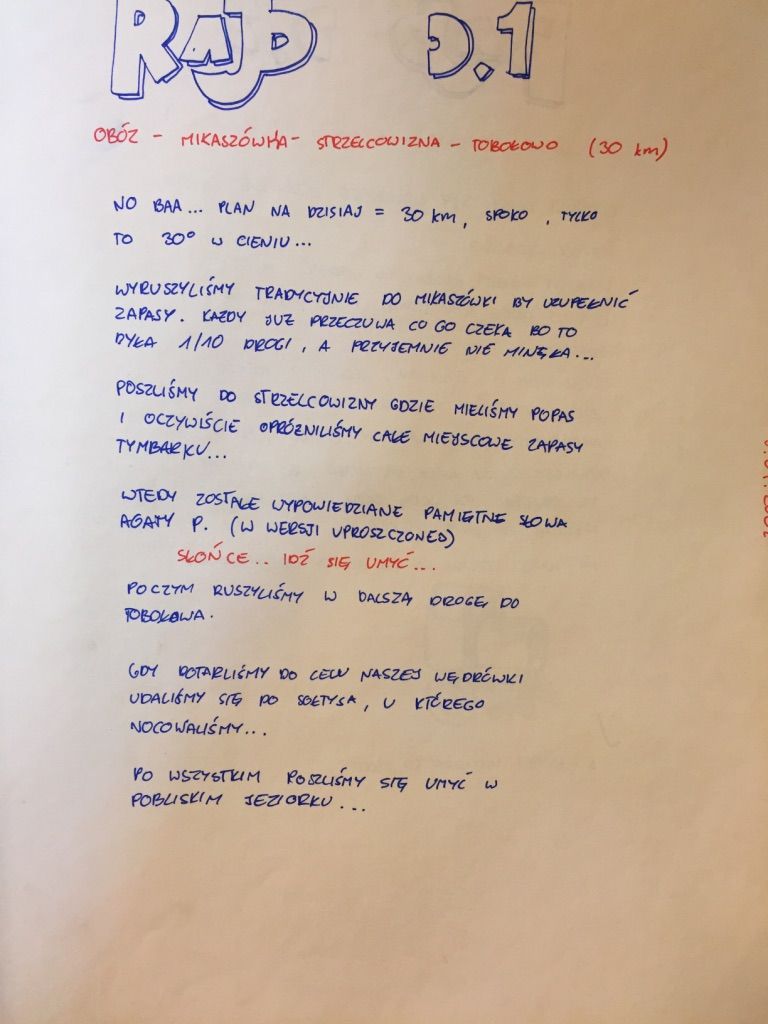 RAJD D.1
OBÓZ - MIKASZÓWKA - STRZELCOWIZNA - TOBOŁOWO (30 km)
NO BAA... PLAN NA DZISIAJ = 30 km, SPOKO, TYLKO
TO 30° W CIENIU...
WYRUSZYLIŚMY TRADYCYJNIE DO MIKASZÓWKI BY UZUPEŁNIĆ
ZAPASY. KAŻDY JUŻ PRZECZUWA CO GO CZEKA BO TO
DYŁA 1/10 DROGI, A PRZYJEMNIE NIE MINĘŁA...
POSZLIŚMY DO STRZELCOWIZNY GDZIE MIELIŚMY POPAS
I OCZYWIŚCIE OPRÓŻNILIŚMY CAŁE MIEJSCOWE ZAPASY
TYMBARKU...
WTEDY ZOSTAŁE WYPOWIEDZIANE PAMIĘTNE SŁOWA
AGATY P. (W WERSJI UPROSZCZONEJ)
SŁOŃCE.. IDŹ SIĘ UMYĆ...
POCZYM RUSZYLIŚMY W DALSZĄ DROGĘ DO
TOBOŁOWA.
GDY DOTARLIŚMY DO CELU NASZEJ WĘDRÓWKI
UDALIŚMY SIĘ DO SOŁTYSA, U KTÓREGO
NOCOWALIŚMY...
PO WSZYSTKIM POSZLIŚMY SIĘ UMYĆ W
POBLISKIM JEZIORKU...